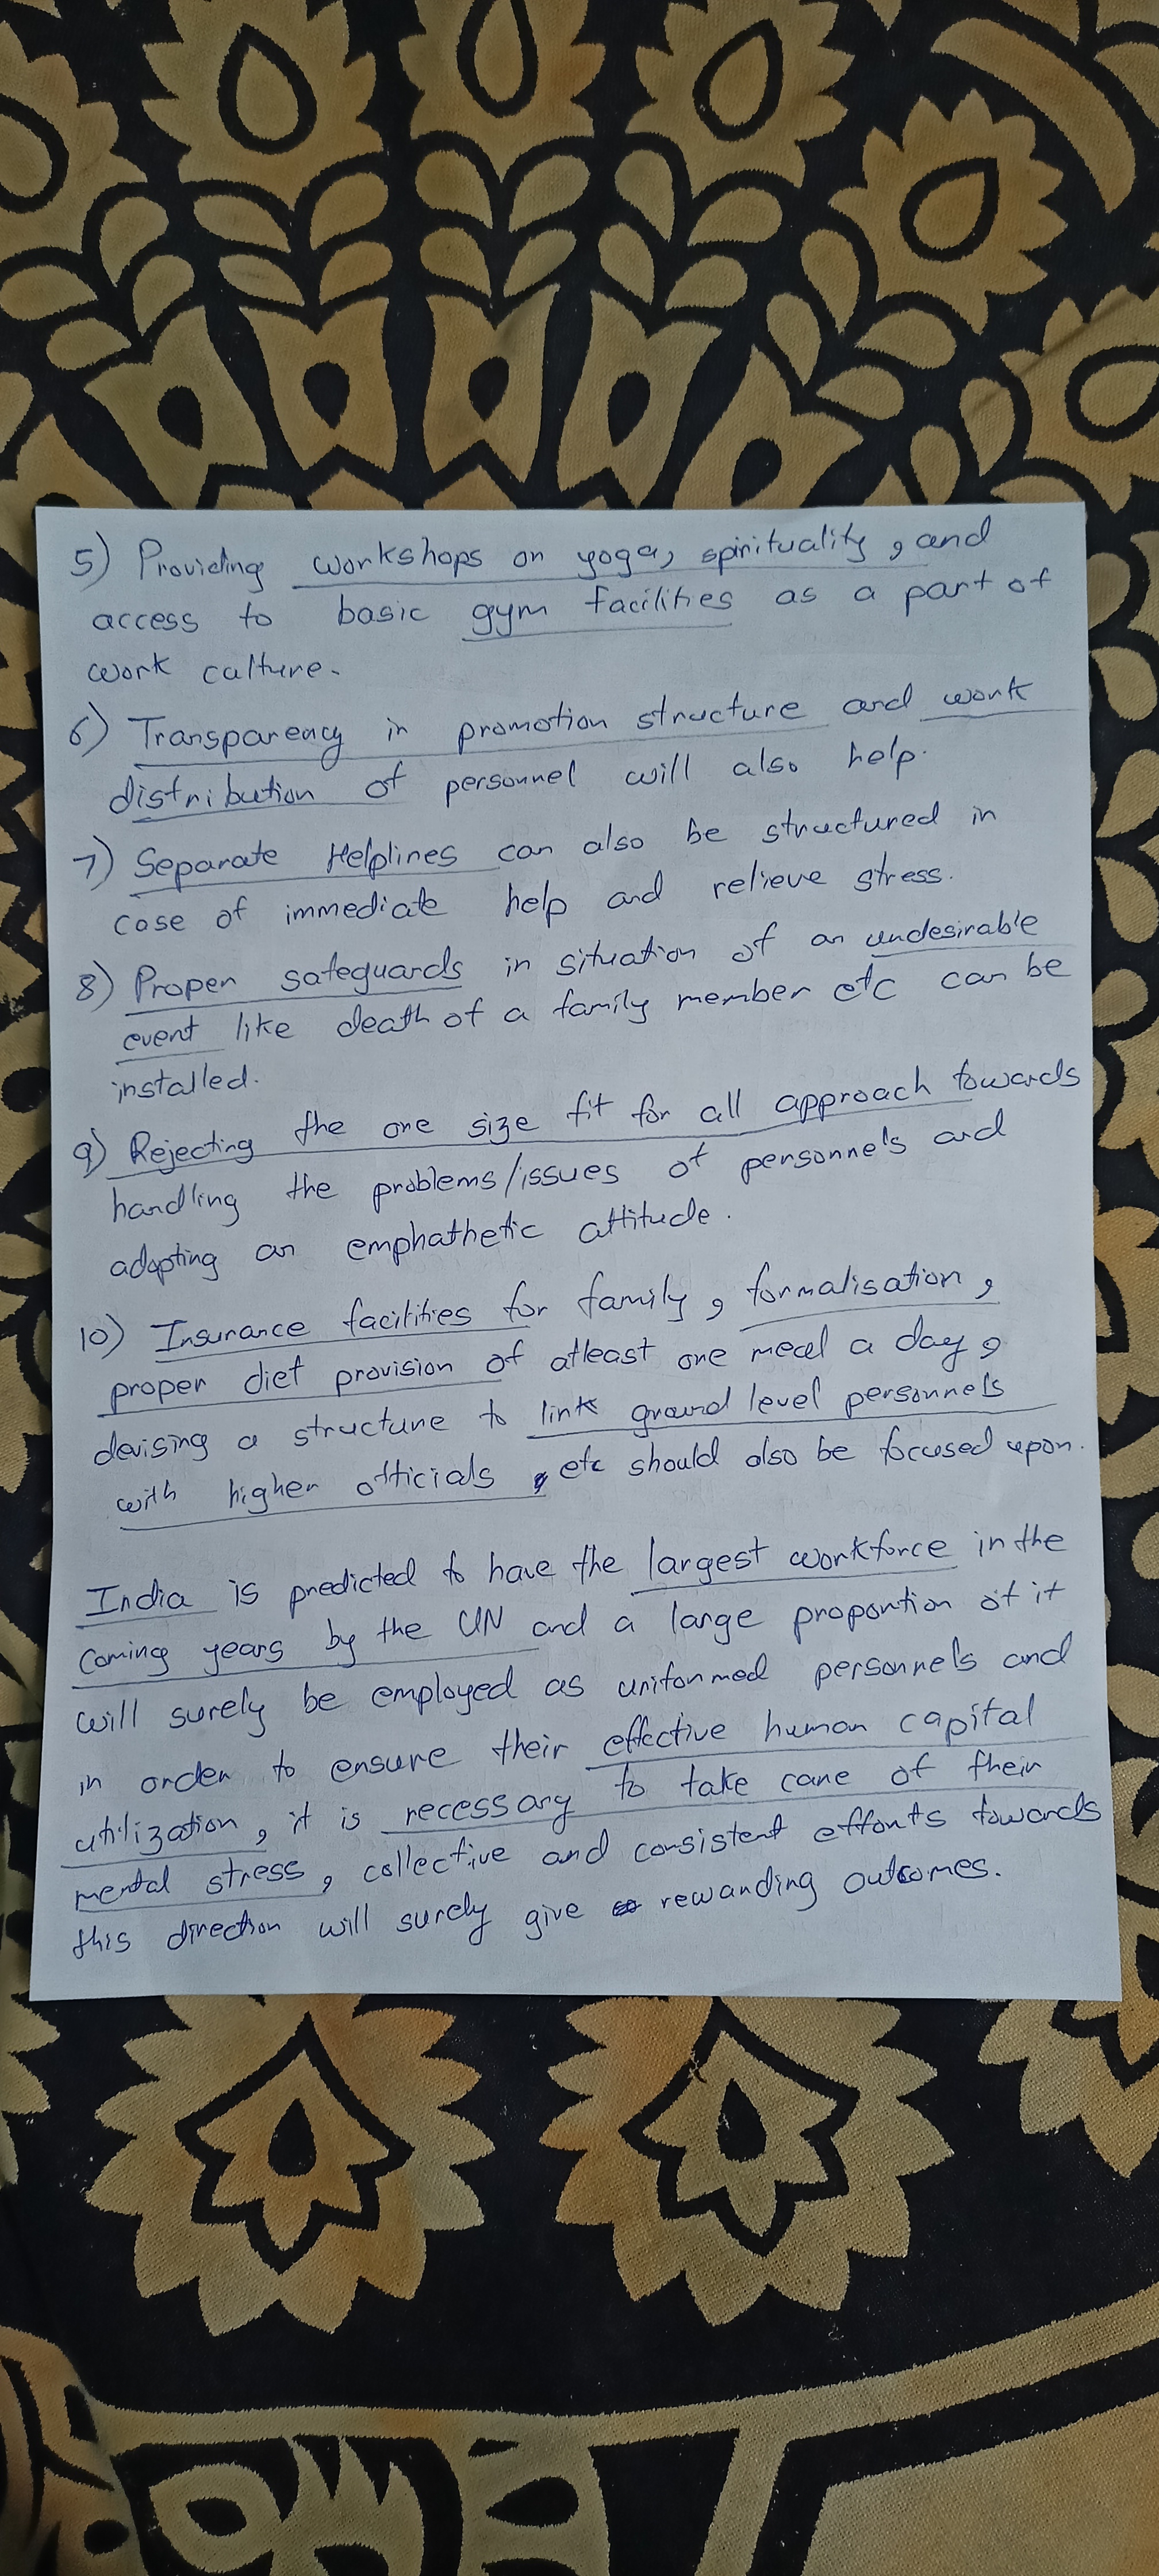 5) Providing workshops on yoga, spirituality, and
access to basic gym facilities as a part of
work culture.
6) Transparency in promotion structure and work
distribution of personnel will also help.
7) Separate Helplines can also be structured in
case of immediate help and relieve stress.
8) Proper safeguards in situation of an undesirable
event like death of a family member etc can be
installed.
9) Rejecting the one size fit for all approach towards
handling the problems/issues of personnels and
adopting an emphathetic attitude.
10) Insurance facilities for family, formalisation,
proper diet provision of atleast one meal a day,
devising a structure to link ground level personnels
with higher officials, etc should also be focused upon.
India is predicted to have the largest workforce in the
coming years by the UN and a large proportion of it
will surely be employed as uniformed personnels and
in order to ensure their effective human capital
utilization, it is necessary to take care of their
mental stress, collective and consistent efforts towards
this direction will surely give rewarding outcomes.